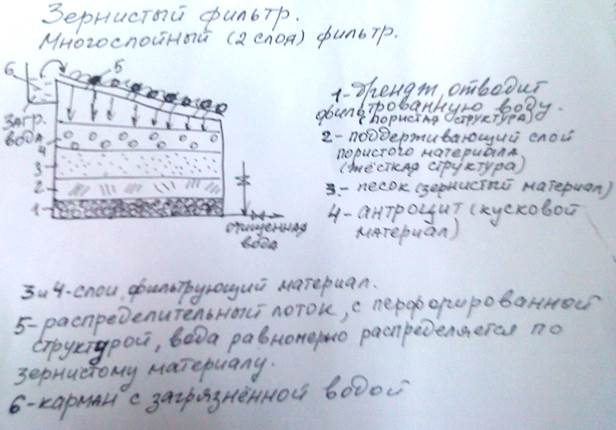 Зернистый фильтр.
Многослойный (2 слоя) фильтр.
6
5
загр.
вода
4
3
2
1
очищенная
вода
1- дренаж, отводит
фильтрованную воду.
(пористая структура)
2- поддерживающий слой
пористого материала
(жёсткая структура)
3- песок (зернистый материал)
4- антроцит (кусковой
материал)
3 и 4-слои фильтрующий материал.
5- распределительный лоток, с перфорированной
структурой, вода равномерно распределяется по
зернистому материалу.
6- карман с загрязнённой водой